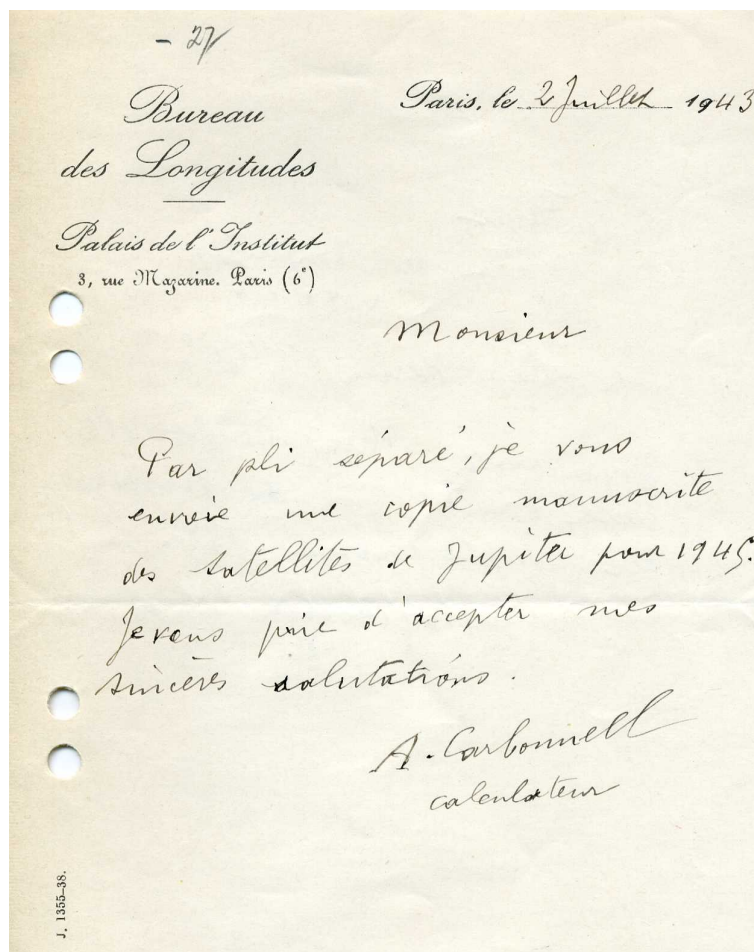 - 27
Bureau
des Longitudes
Palais de l'Institut
3, rue Mazarine. Paris (6e)
Paris, le 2 Juillet 1943
Monsieur
Par pli séparé, je vous
envoie une copie manuscrite
des satellites de Jupiter pour 1945.
Je vous prie d'accepter mes
sincères salutations.
A. Carbonnell
calculateur
J. 1355-38.